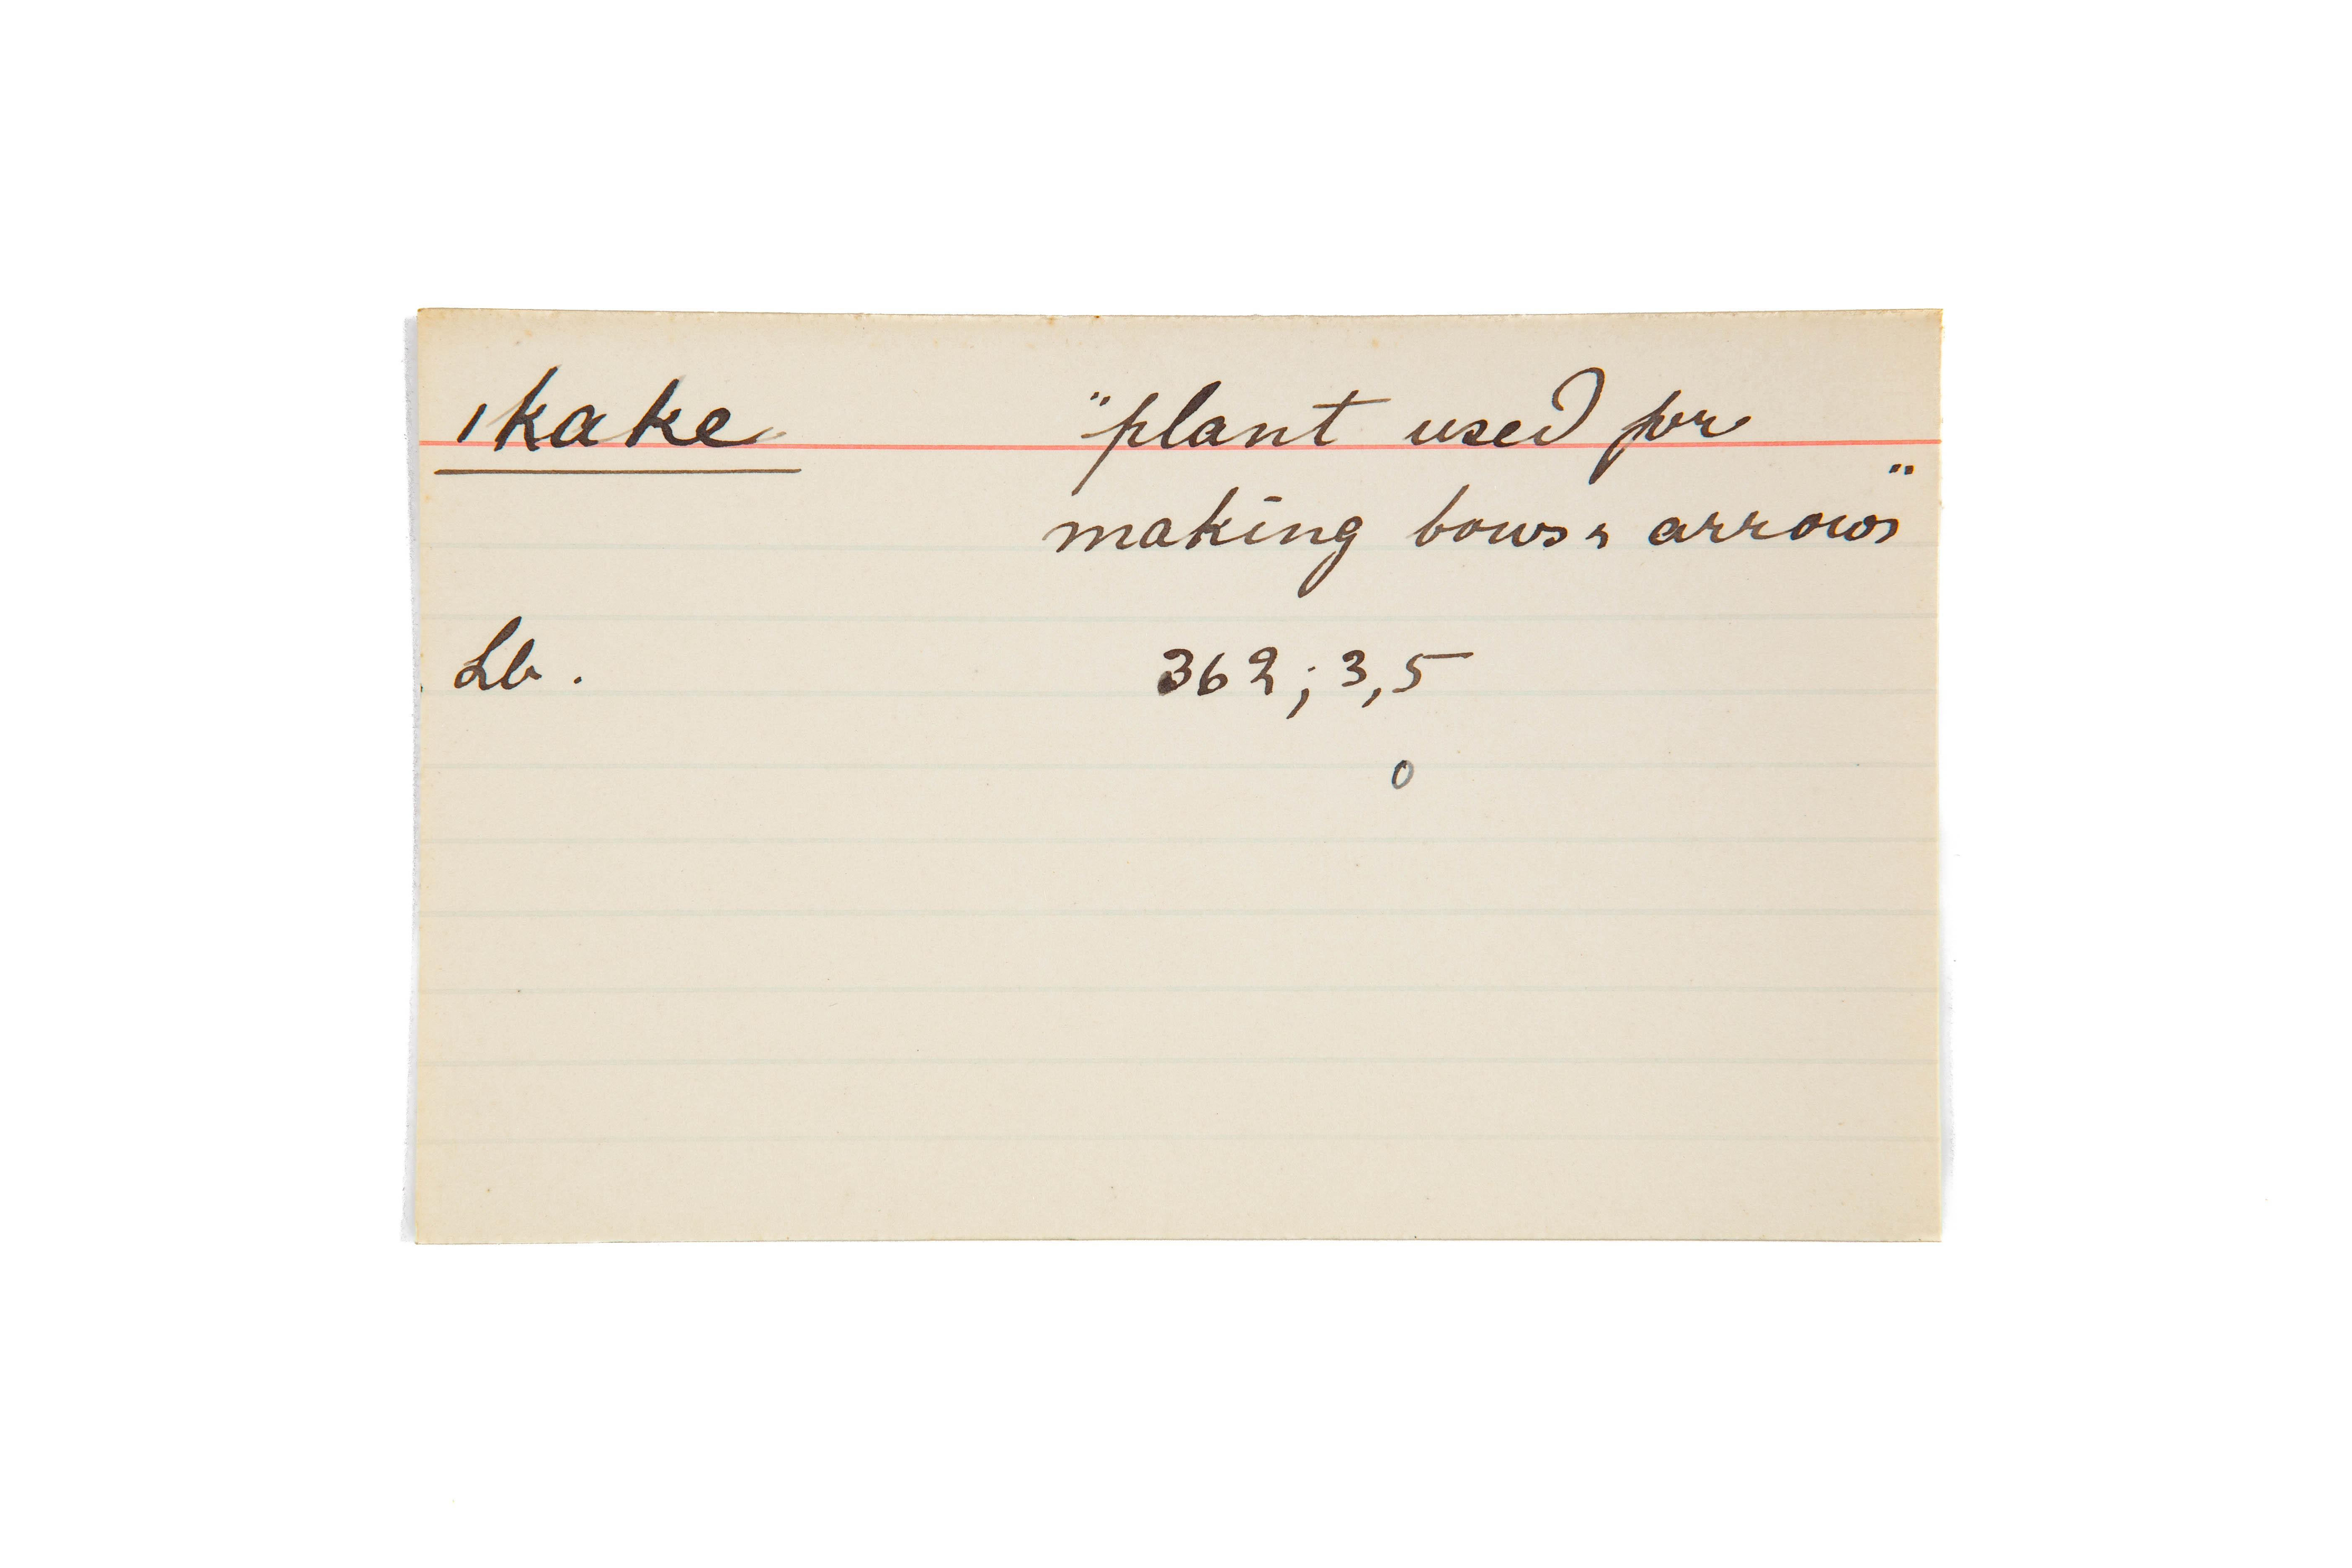 ıkake "plant used for
making bows & arrows"
Lb. 362; 3,5
o